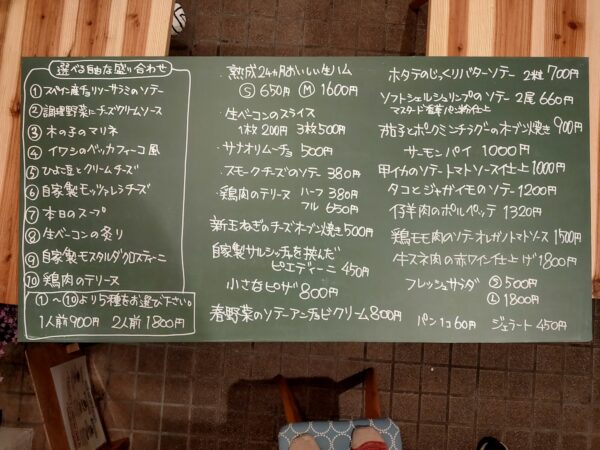 選べる自由な盛り合わせ
① スペイン産チョリソーサラミのソテー
② 調理野菜にチーズクリームソース
③ 木の子のマリネ
④ イワシのベッカフィーコ風
⑤ ひよこ豆とクリームチーズ
⑥ 自家製モッツァレラチーズ
⑦ 本日のスープ
⑧ 生ベーコンの炙り
⑨ 自家製モスタルダクロスティーニ
⑩ 鶏肉のテリーヌ
①～⑩より5種をお選び下さい。
1人前900円 2人前1800円
・熟成24ヵ月おいしい生ハム
Ⓢ650円 Ⓜ1600円
・生ベーコンのスライス
1枚200円 3枚500円
・サナオリムーチョ 500円
・スモークチーズのソテー 380円
・鶏肉のテリーヌ ハーフ380円
フル 650円
新玉ねぎのチーズオーブン焼き500円
自家製サルシッチャを挟んだ
ピエディーニ 450円
小さなピザ 800円
春野菜のソテーアンチョビクリーム800円
ホタテのじっくりバターソテー 2粒 700円
ソフトシェルシュリンプのソテー 2尾 660円
マスタード香草パン粉仕上
茄子とポークミンチラグのオーブン焼き 900円
サーモンパイ 1000円
甲イカのソテートマトソース仕上1000円
タコとジャガイモのソテー 1200円
仔羊肉のポルペッテ 1320円
鶏モモ肉のソテーオレガノトマトソース 1500円
牛スネ肉の赤ワイン仕上げ 1800円
フレッシュサラダ Ⓢ500円
Ⓛ1800円
パン1コ60円 ジェラート 450円